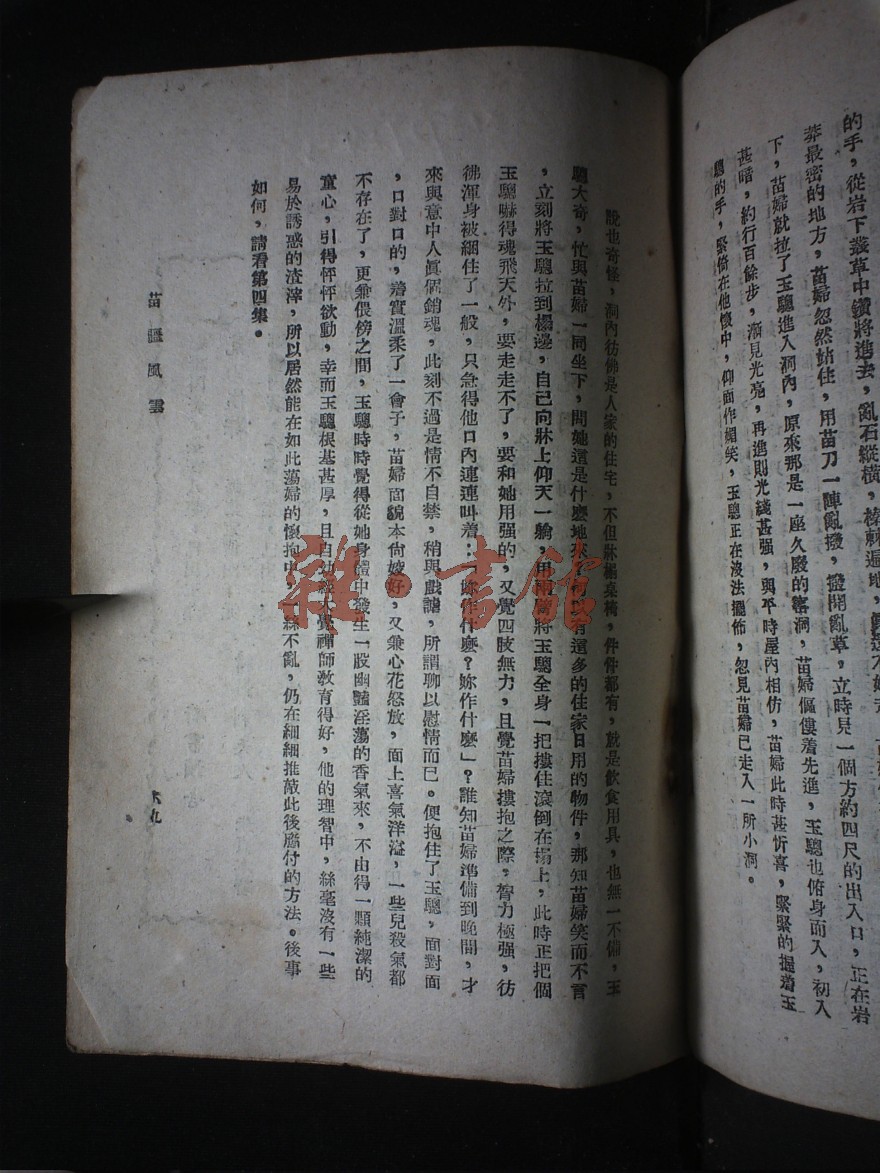 的手，從岩下叢草中鑽將進去，亂石縱橫，榛棘遍地，
莽最密的地方，苗婦忽然站住，用苗刀一陣亂撥，撥開亂草，立時見一個方約四尺的出入口，正在岩
下，苗婦就拉了玉驄進入洞內，原來那是一座久廢的窰洞，苗婦傴僂着先進，玉驄也俯身而入，初入
甚暗，約行百餘步，漸見光亮，再進則光綫甚强，與平時屋內相仿，苗婦此時甚忻喜，緊緊的握着玉
驄的手，緊倚在他懷中，仰面作媚笑，玉驄正在沒法擺佈，忽見苗婦已走入一所小洞。
說也奇怪，洞內彷彿是人家的住宅，不但牀榻桌椅，件件都有，就是飲食用具，也無一不備，玉
驄大奇，忙與苗婦一同坐下，問她這是什麼地來？何以有這多的住家日用的物件，那知苗婦笑而不言
，立刻將玉驄拉到榻邊，自己向牀上仰天一躺，用兩臂將玉驄全身一把摟住滾倒在榻上，此時正把個
玉驄嚇得魂飛天外，要走走不了，要和她用强的，又覺四肢無力，且覺苗婦摟抱之際，膂力極强，彷
彿渾身被綑住了一般，只急得他口內連連叫着：「妳作什麼？妳作什麼」？誰知苗婦準備到晚間，才
來與意中人眞個銷魂，此刻不過是情不自禁，稍與戲謔，所謂聊以慰情而已。便抱住了玉驄，面對面
，口對口的，着實溫柔了一會子，苗婦面貌本尙姣好，又兼心花怒放，面上喜氣洋溢，一些兒殺氣都
不存在了，更兼偎傍之間，玉驄時時覺得從她身體中發生一股幽豔淫蕩的香氣來，不由得一顆純潔的
童心，引得怦怦欲動，幸而玉驄根基甚厚，且自幼經大覺禪師敎育得好，他的理智中，絲毫沒有一些
易於誘惑的渣滓，所以居然能在如此蕩婦的懷抱中，一絲不亂，仍在細細推敲此後應付的方法。後事
如何，請看第四集。
苗疆風雲
六九
雜·書館